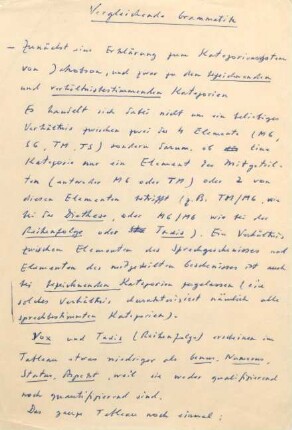 Vergleichende Grammatik
– Zunächst eine Erklärung zum Kategoriensystem
von Jakobson, und zwar zu den bezeichnenden
und verhältnisbestimmenden Kategorien
Es handelt sich dabei nicht um ein beliebiges
Verhältnis zwischen zwei der 4 Elemente (MG,
SG, TM, TS) sondern darum, ob eine
Kategorie nur ein Element des Mitgeteil-
ten (entweder MG oder TM) oder 2 von
diesen Elementen betrifft (z.B. TM/MG, wo
bei der Diathese, oder MG/MG wie bei der
Reihenfolge oder Taxis). Ein Verhältnis
zwischen Elementen des Sprechgeschehnisses und
Elementen des mitgeteilten Geschehnisses ist auch
bei bezeichnenden Kategorien zugelassen (ein
solches Verhältnis charakterisiert nämlich alle
sprechbestimmten Kategorien).
Vox und Taxis (Reihenfolge) erscheinen im
Tableau etwas niedriger als Genus, Numerus,
Status, Aspect, weil sie weder qualifizierend
noch quantifizierend sind.
Das ganze Tableau noch einmal: